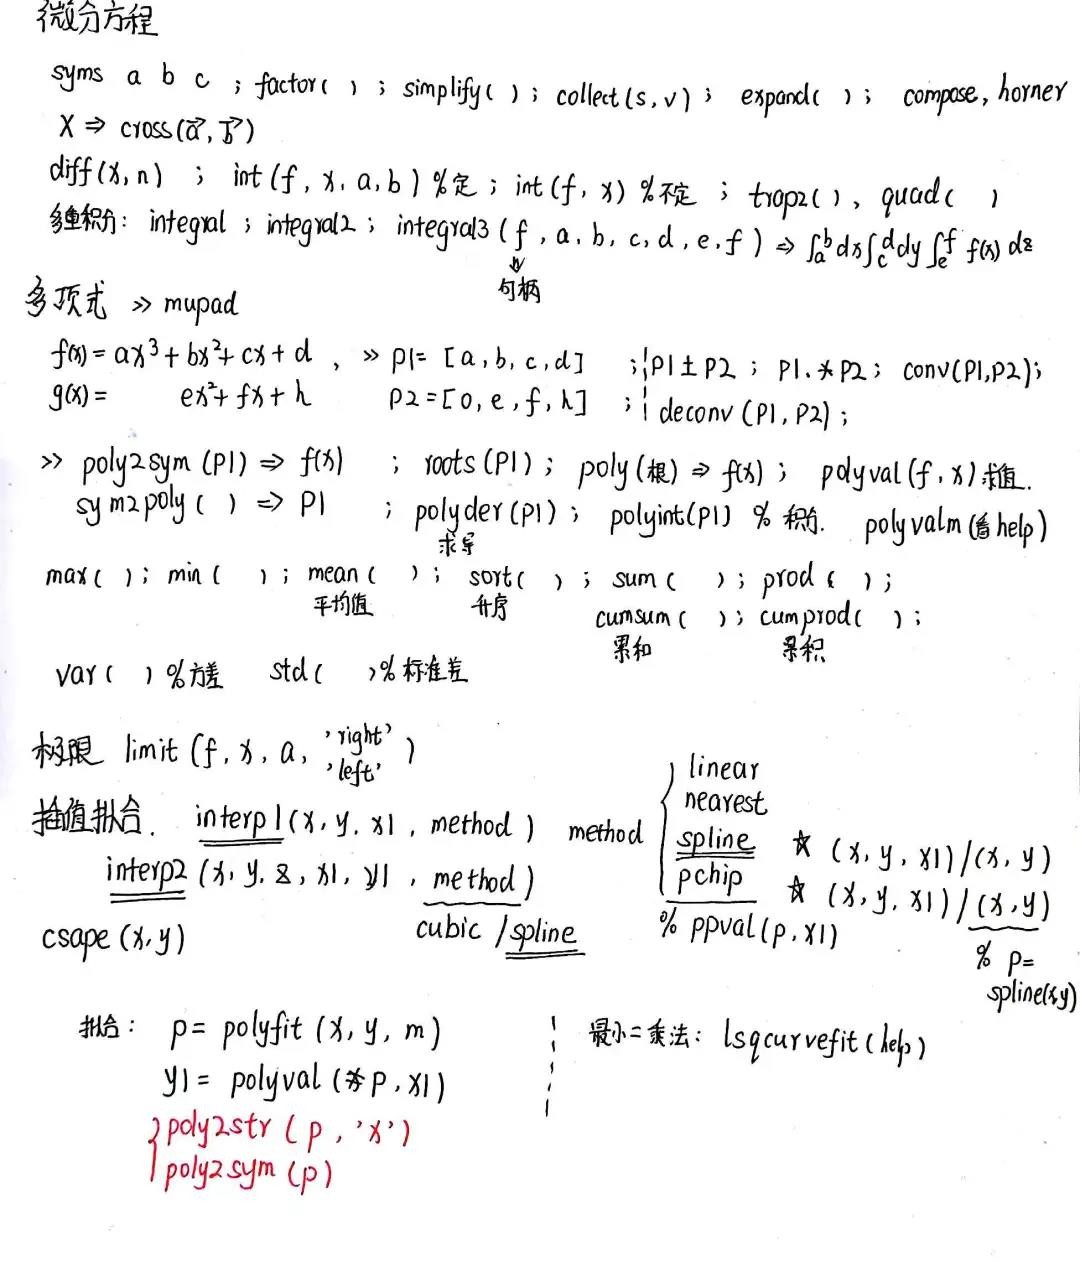 微分方程
syms a b c ; factor( ) ; simplify( ) ; collect(s,v) ; expand( ) ; compose, horner
X ⇒ cross(a⃗, b⃗)
diff(x,n) ; int(f, x, a, b) %定 ; int(f, x) %不定 ; trapz( ), quad( )
多重积分: integral ; integral2 ; integral3 (f, a, b, c, d, e, f) ⇒ ∫ₐᵇdx∫_c^d dy ∫_e^f f(x) dz
⇓
句柄
多项式 >> mupad
f(x) = ax³ + bx² + cx + d , >> P1= [a, b, c, d] ; P1 ± P2 ; P1.*P2 ; conv(P1,P2);
g(x) = ex² + fx + h P2 = [0, e, f, h] ; deconv (P1, P2) ;
>> poly2sym (P1) ⇒ f(x) ; roots(P1) ; poly(根) ⇒ f(x) ; polyval(f, x) 求值.
sym2poly ( ) ⇒ P1 ; polyder(P1) ; polyint(P1) % 积分. polyvalm (看help)
求导
max( ) ; min( ) ; mean( ) ; sort( ) ; sum( ) ; prod( ) ;
平均值 升序
cumsum( ) ; cumprod( ) ;
累和 累积
var( ) %方差 std( )%标准差
极限 limit (f, x, a, 'right' )
'left'
插值拟合. interp1(x, y, x1, method) method { linear
nearest
spline ☆ (x, y, x1)/(x, y)
interp2 (x, y, z, x1, y1, method) pchip ☆ (x, y, x1)/(x,y)
csape (x,y) cubic / spline % ppval(p, x1)
% p=
spline(x,y)
拟合: p= polyfit (x, y, m) 最小二乘法: lsqcurvefit (help)
y1= polyval (p, x1)
{ poly2str (p, 'x')
poly2sym (p)